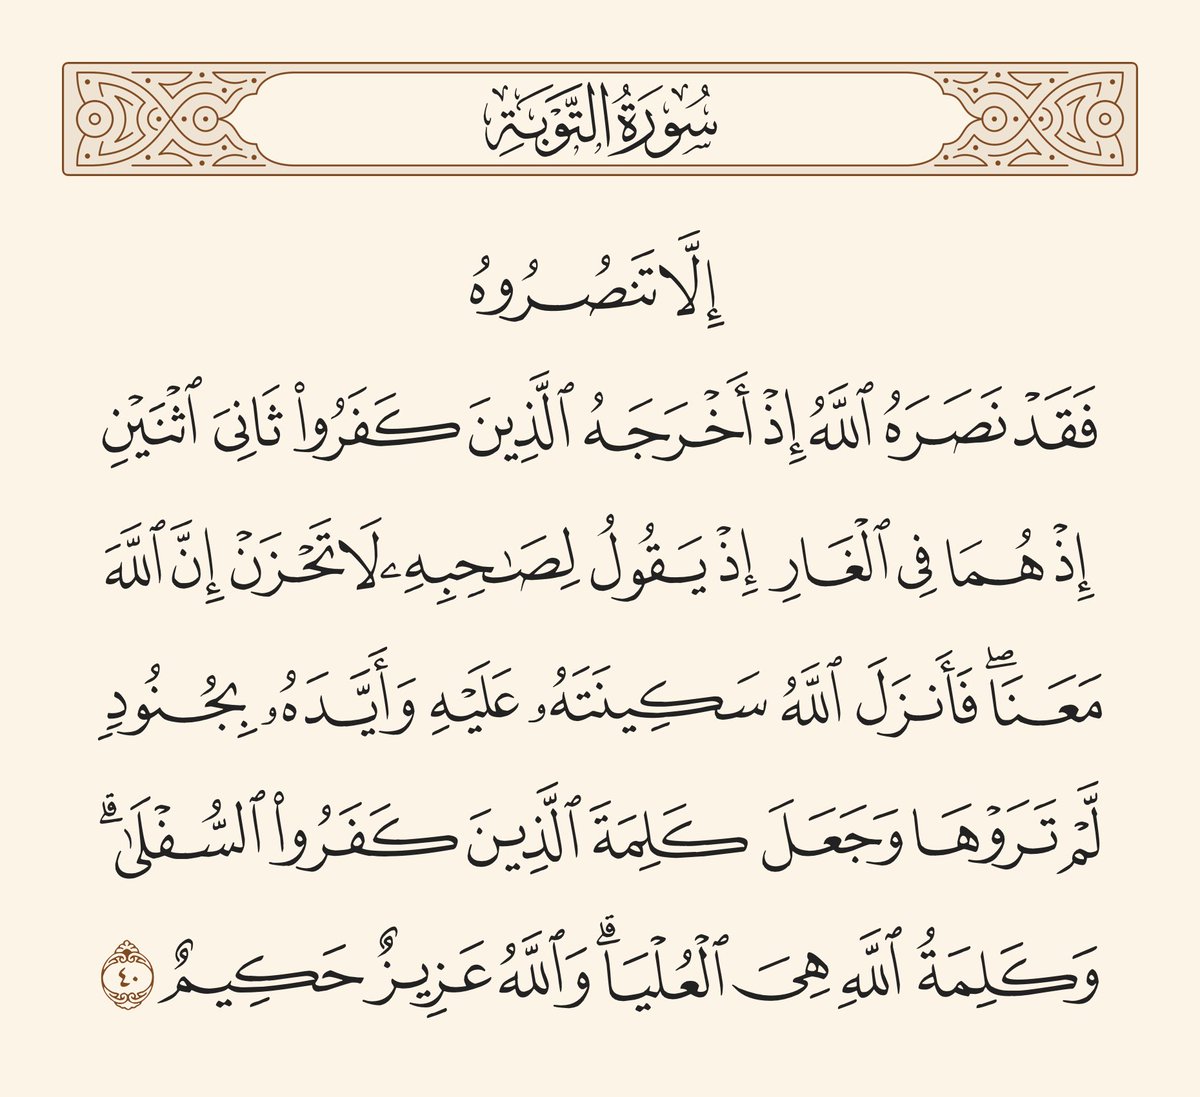 سُورَةُ التَّوۡبَةِ
إِلَّا تَنصُرُوهُ
فَقَدۡ نَصَرَهُ ٱللَّهُ إِذۡ أَخۡرَجَهُ ٱلَّذِينَ كَفَرُواْ ثَانِيَ ٱثۡنَيۡنِ
إِذۡ هُمَا فِي ٱلۡغَارِ إِذۡ يَقُولُ لِصَٰحِبِهِۦ لَا تَحۡزَنۡ إِنَّ ٱللَّهَ
مَعَنَاۖ فَأَنزَلَ ٱللَّهُ سَكِينَتَهُۥ عَلَيۡهِ وَأَيَّدَهُۥ بِجُنُودٖ
لَّمۡ تَرَوۡهَا وَجَعَلَ كَلِمَةَ ٱلَّذِينَ كَفَرُواْ ٱلسُّفۡلَىٰۗ
وَكَلِمَةُ ٱللَّهِ هِيَ ٱلۡعُلۡيَاۗ وَٱللَّهُ عَزِيزٌ حَكِيمٌ ٤٠